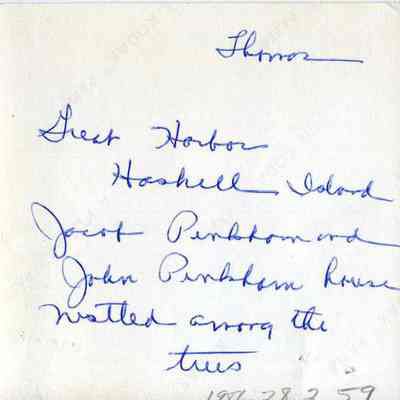 Thomas
Great Harbor
Haskell Island
Jacob Pinkham and
John Pinkham house
nestled among the
trees
59